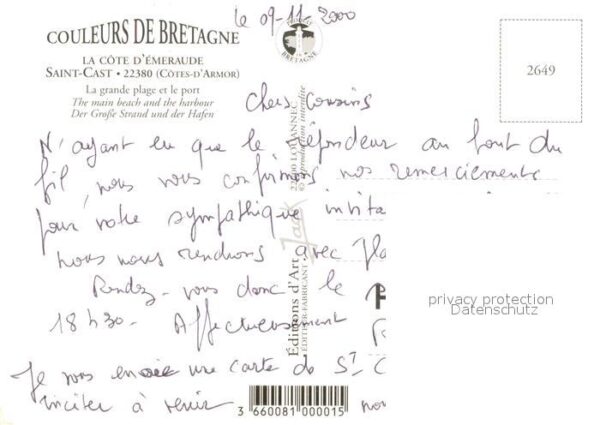 le 09-11-2000
COULEURS DE BRETAGNE
LA CÔTE D'ÉMERAUDE
SAINT-CAST • 22380 (CÔTES-D'ARMOR)
La grande plage et le port
The main beach and the harbour
Der Große Strand und der Hafen
BRETAGNE
2649
Chers Cousins
N'ayant eu que le répondeur au bout du
fil, nous vous confirmons nos remerciements
pour votre sympathique invita
nous nous rendrons avec
Rendez-vous donc le
18h30. Affectueusement
Je vous envoie une carte de St C
inciter à venir nous
Éditions d'Art Jack
ÉDITEUR-FABRICANT
22400 LOUANNEC
© reproduction interdite
3 660081 000015
privacy protection
Datenschutz